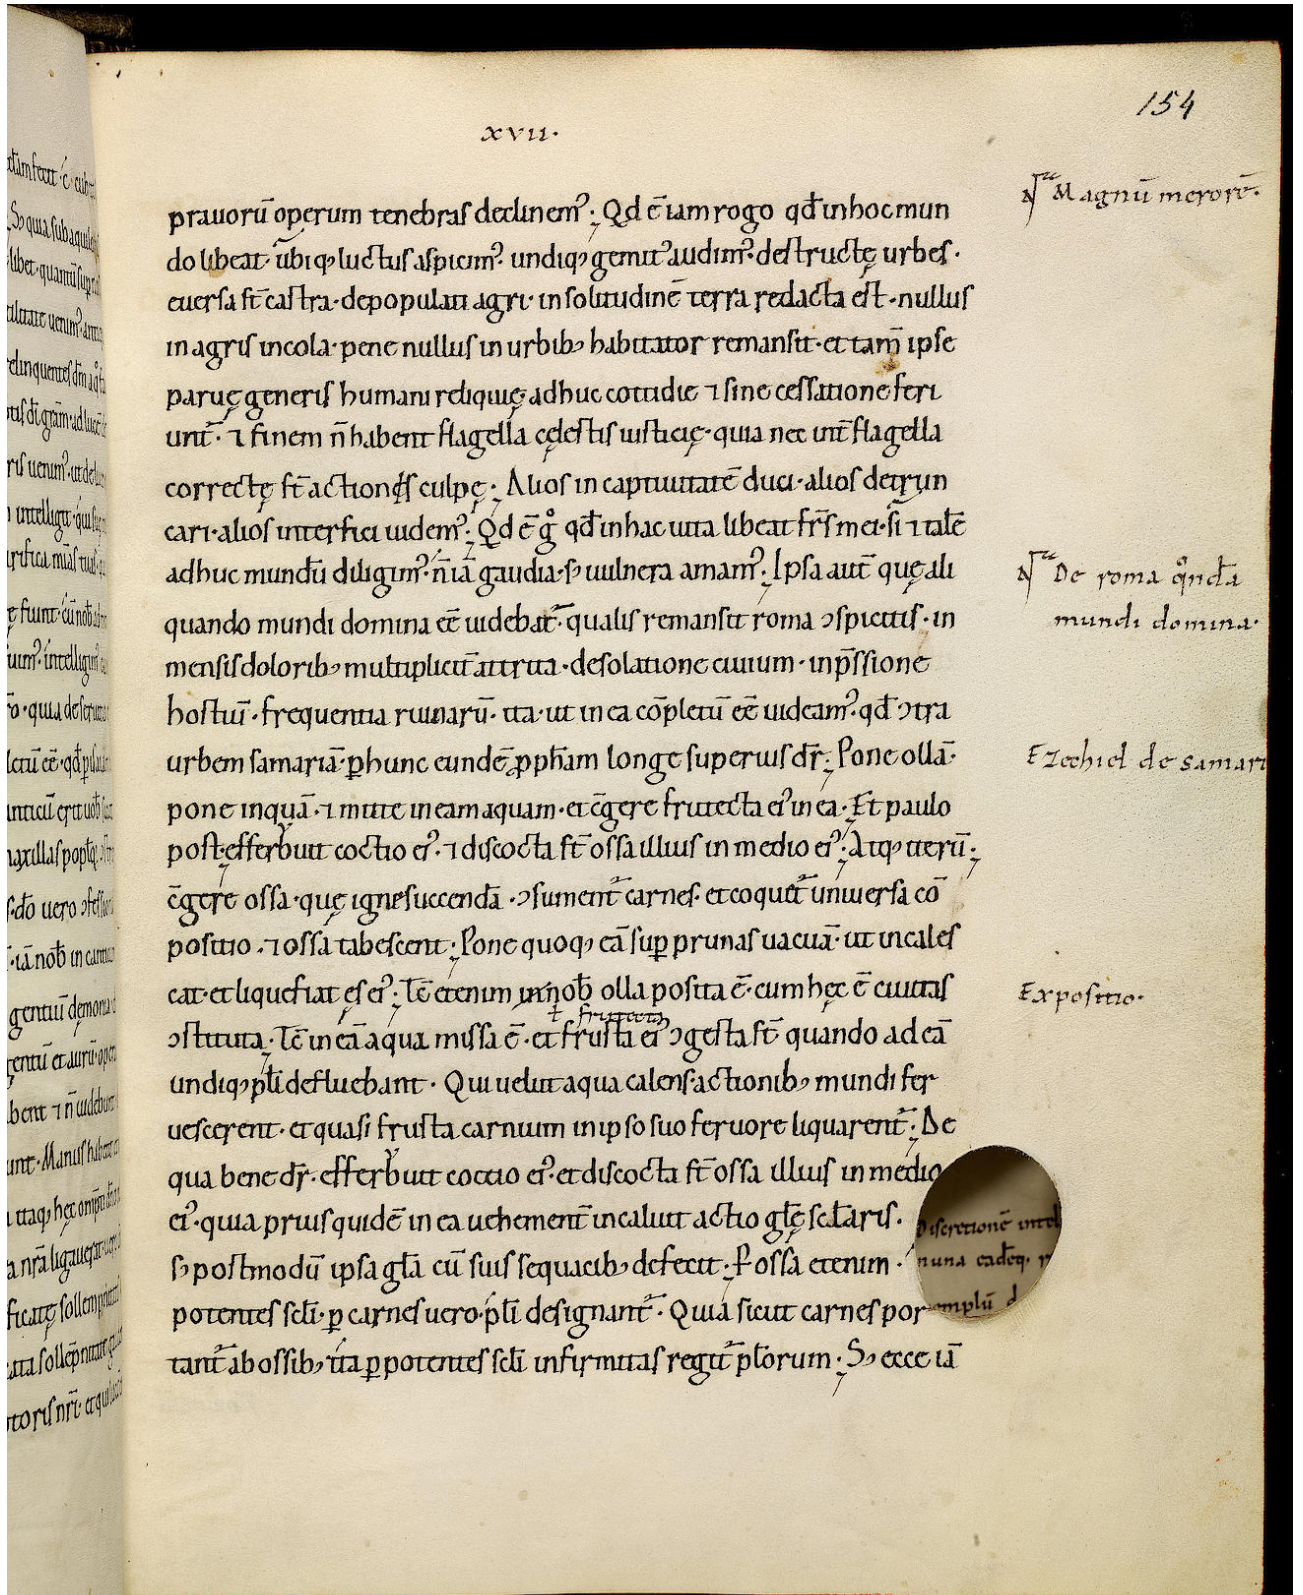 154
xvii·
prauorū operum tenebras declinem᷒. Qd ē iam rogo qđ in hoc mun
do libeat· ubiq; luctus aspicim᷒. undiq; gemit᷒ audim᷒. destructę urbes·
euersa st̄ castra· depopulati agri· in solitudinē terra redacta est· nullus
in agris incola· pene nullus in urbib; habitator remansit· et tam̄ ipse
paruę generis humani reliquię adhuc cottidie ⁊ sine cessatione feri
unt᷑· ⁊ finem n̄ habent flagella cęlestis iusticię· quia nec int̄ flagella
correctę st̄ actionis culpę. Alios in captiuitatē duci· alios detrun
cari· alios interfici uidem᷒. Qd ē gͦ qđ in hac uita libeat fr̄s mei· si ⁊ talē
adhuc mundū diligim᷒· n̄ iā gaudia· s; uulnera amam᷒. Ipsa aut̄ quę ali
quando mundi domina eē uidebat᷑· qualis remansit roma ↄspicitis· in
mensis dolorib; multiplicit̄ attrita· desolatione ciuium· inp̄ssione
hostiū· frequentia ruinarū· ita· ut in ea cōpletū eē uideam᷒· qđ ↄtra
urbem samariā· ꝑ hunc eundē ꝓph̄am longe superius dr̄. Pone ollā·
pone inquā· ⁊ mitte in eam aquam· et c̄gere frutecta ei᷒ in ea· Et paulo
post· efferbuit coctio ei᷒· ⁊ discocta st̄ ossa illius in medio ei᷒. Atq; iterū·
c̄gere ossa· quę igne succendā· ↄsument᷑ carnes· et coquet᷑ uniuersa cō
positio· ⁊ ossa tabescent. Pone quoq; eā suꝑ prunas uacuā· ut incales
cat· et liquefiat ęs ei᷒. Tc̄ etenim nob̄ olla posita ē· cum hęc ē ciuitas
ł frutecta
ↄstituta. Tc̄ in eā aqua missa ē· et frusta ei᷒ ↄgesta st̄ quando ad eā
undiq; pl̄i defluebant· Qui uelut aqua calens actionib; mundi fer
uescerent· et quasi frusta carnium in ipso suo feruore liquarent᷑. De
qua bene dr̄· efferbuit coctio ei᷒· et discocta st̄ ossa illius in medio
ei᷒· quia prius quidē in ea uehement̄ incaluit actio gl̄ę scl̄aris·
s; postmodū ipsa gl̄a cū suis sequacib; defecit. P ossa etenim·
potentes scl̄i· ꝑ carnes uero· pl̄i designant᷑· Quia sicut carnes por
tant᷑ ab ossib; ita ꝑ potentes scl̄i infirmitas regit᷑ pl̄orum. S; ecce iā
Magnū merorē·
De roma qͦndā
mundi domina·
Ezechiel de samari
Expositio·